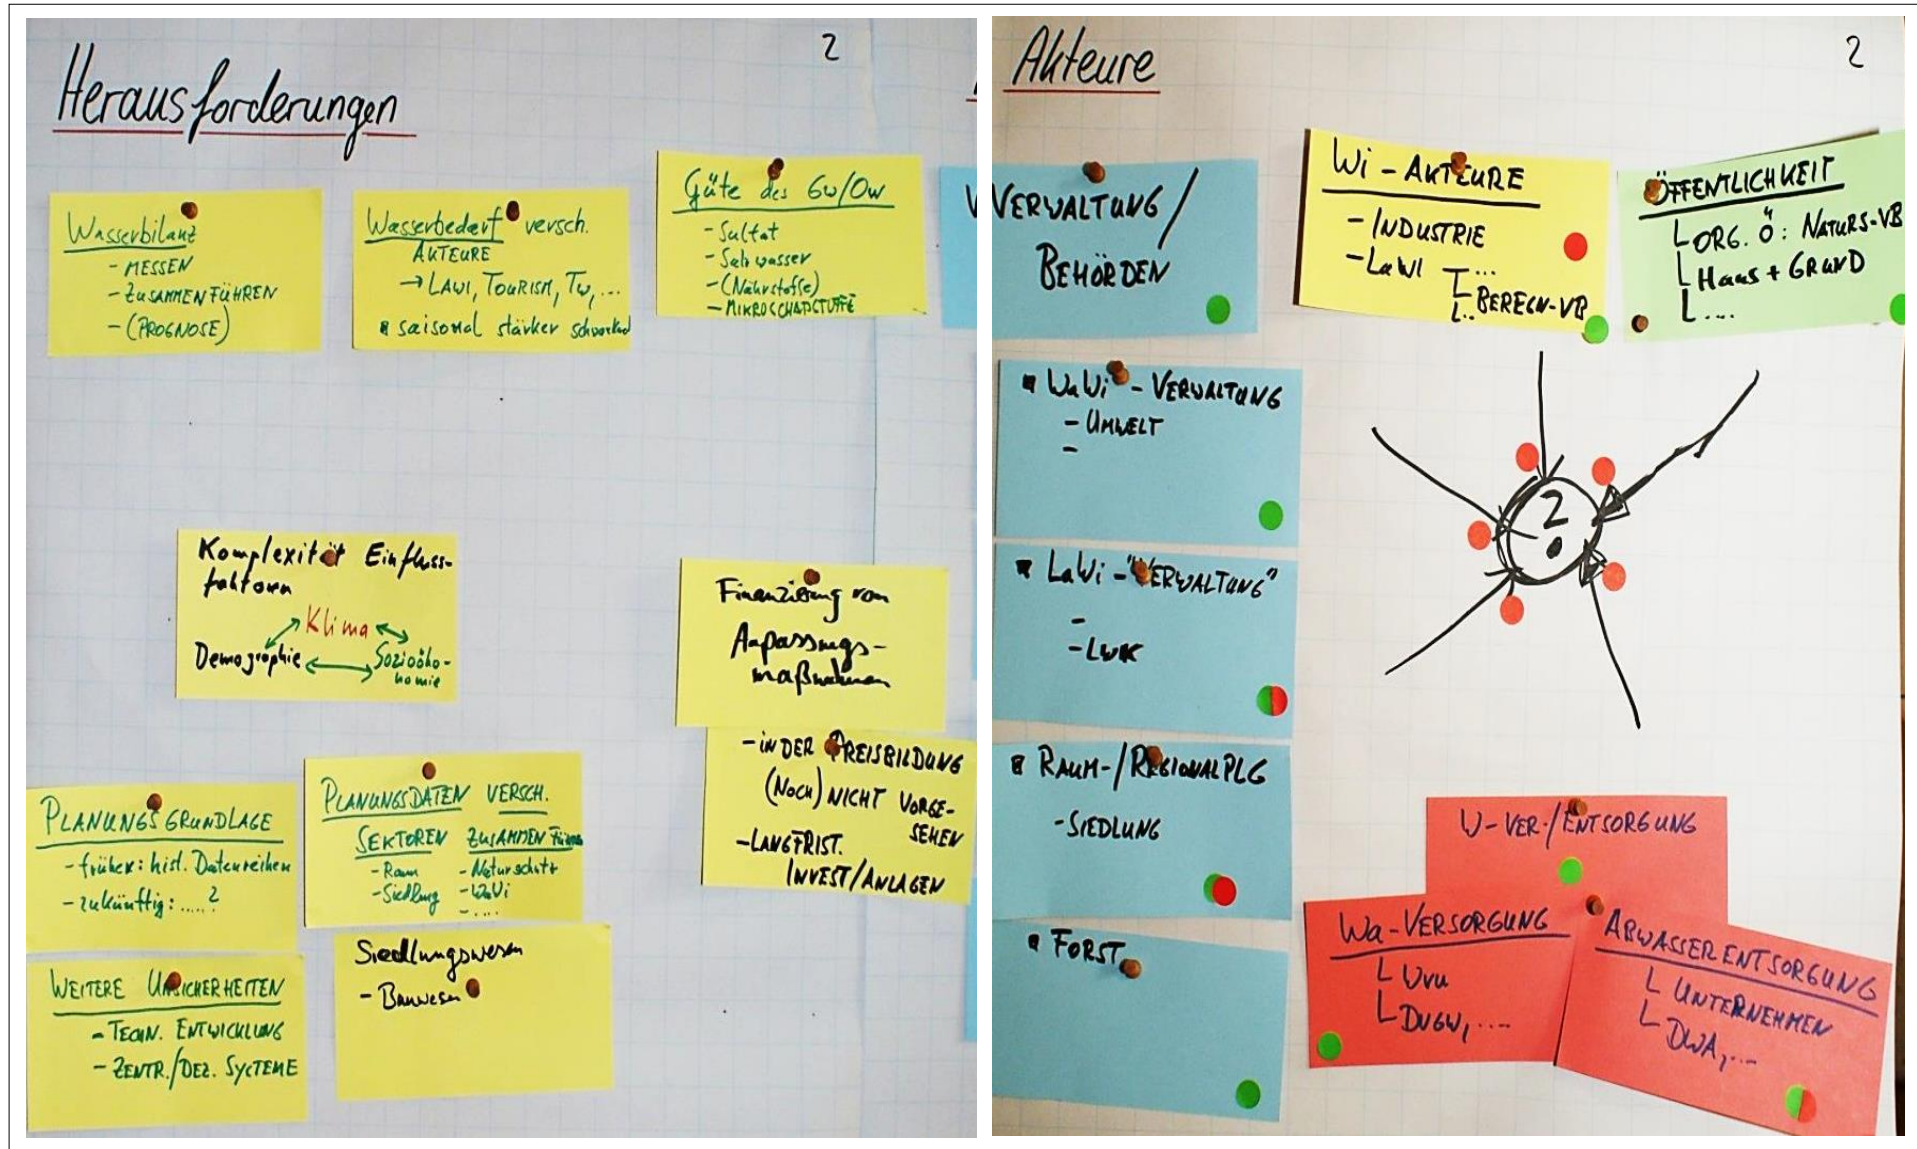 Herausforderungen
2
Wasserbilanz
- MESSEN
- ZUSAMMENFÜHREN
- (PROGNOSE)
Wasserbedarf versch.
AKTEURE
→ LAWI, TOURISM, TW, ...
saisonal stärker schwankd
Güte des GW/OW
- Sulfat
- Salzwasser
- (Nährstoffe)
- MIKROSCHADSTOFFE
Komplexität Einfluss-
faktoren
Klima
Demographie
Sozioöko-
nomie
Finanzierung von
Anpassungs-
maßnahmen
- IN DER PREISBILDUNG
(NOCH) NICHT VORGE-
SEHEN
- LANGFRIST.
INVEST/ANLAGEN
PLANUNGSGRUNDLAGE
- früher: hist. Datenreihen
- zukünftig: ....?
PLANUNGSDATEN VERSCH.
SEKTOREN ZUSAMMENFÜHREN
- Raum - Naturschutz
- Siedlung - WaWi
- ....
WEITERE UNSICHERHEITEN
- TECHN. ENTWICKLUNG
- ZENTR./DEZ. SYSTEME
Siedlungswesen
- Bauwesen
Akteure
2
VERWALTUNG/
BEHÖRDEN
WaWi - VERWALTUNG
- UMWELT
-
LaWi - "VERWALTUNG"
-
- LWK
RAUM-/REGIONALPLG
- SIEDLUNG
FORST
Wi - AKTEURE
- INDUSTRIE
- LaWI ...
BEREGN-VB
..
ÖFFENTLICHKEIT
ORG. Ö: NATURS-VB
HAUS + GRUND
....
?
W-VER-/ENTSORGUNG
Wa-VERSORGUNG
WVU
DVGW, ....
ABWASSERENTSORGUNG
UNTERNEHMEN
DWA, ...